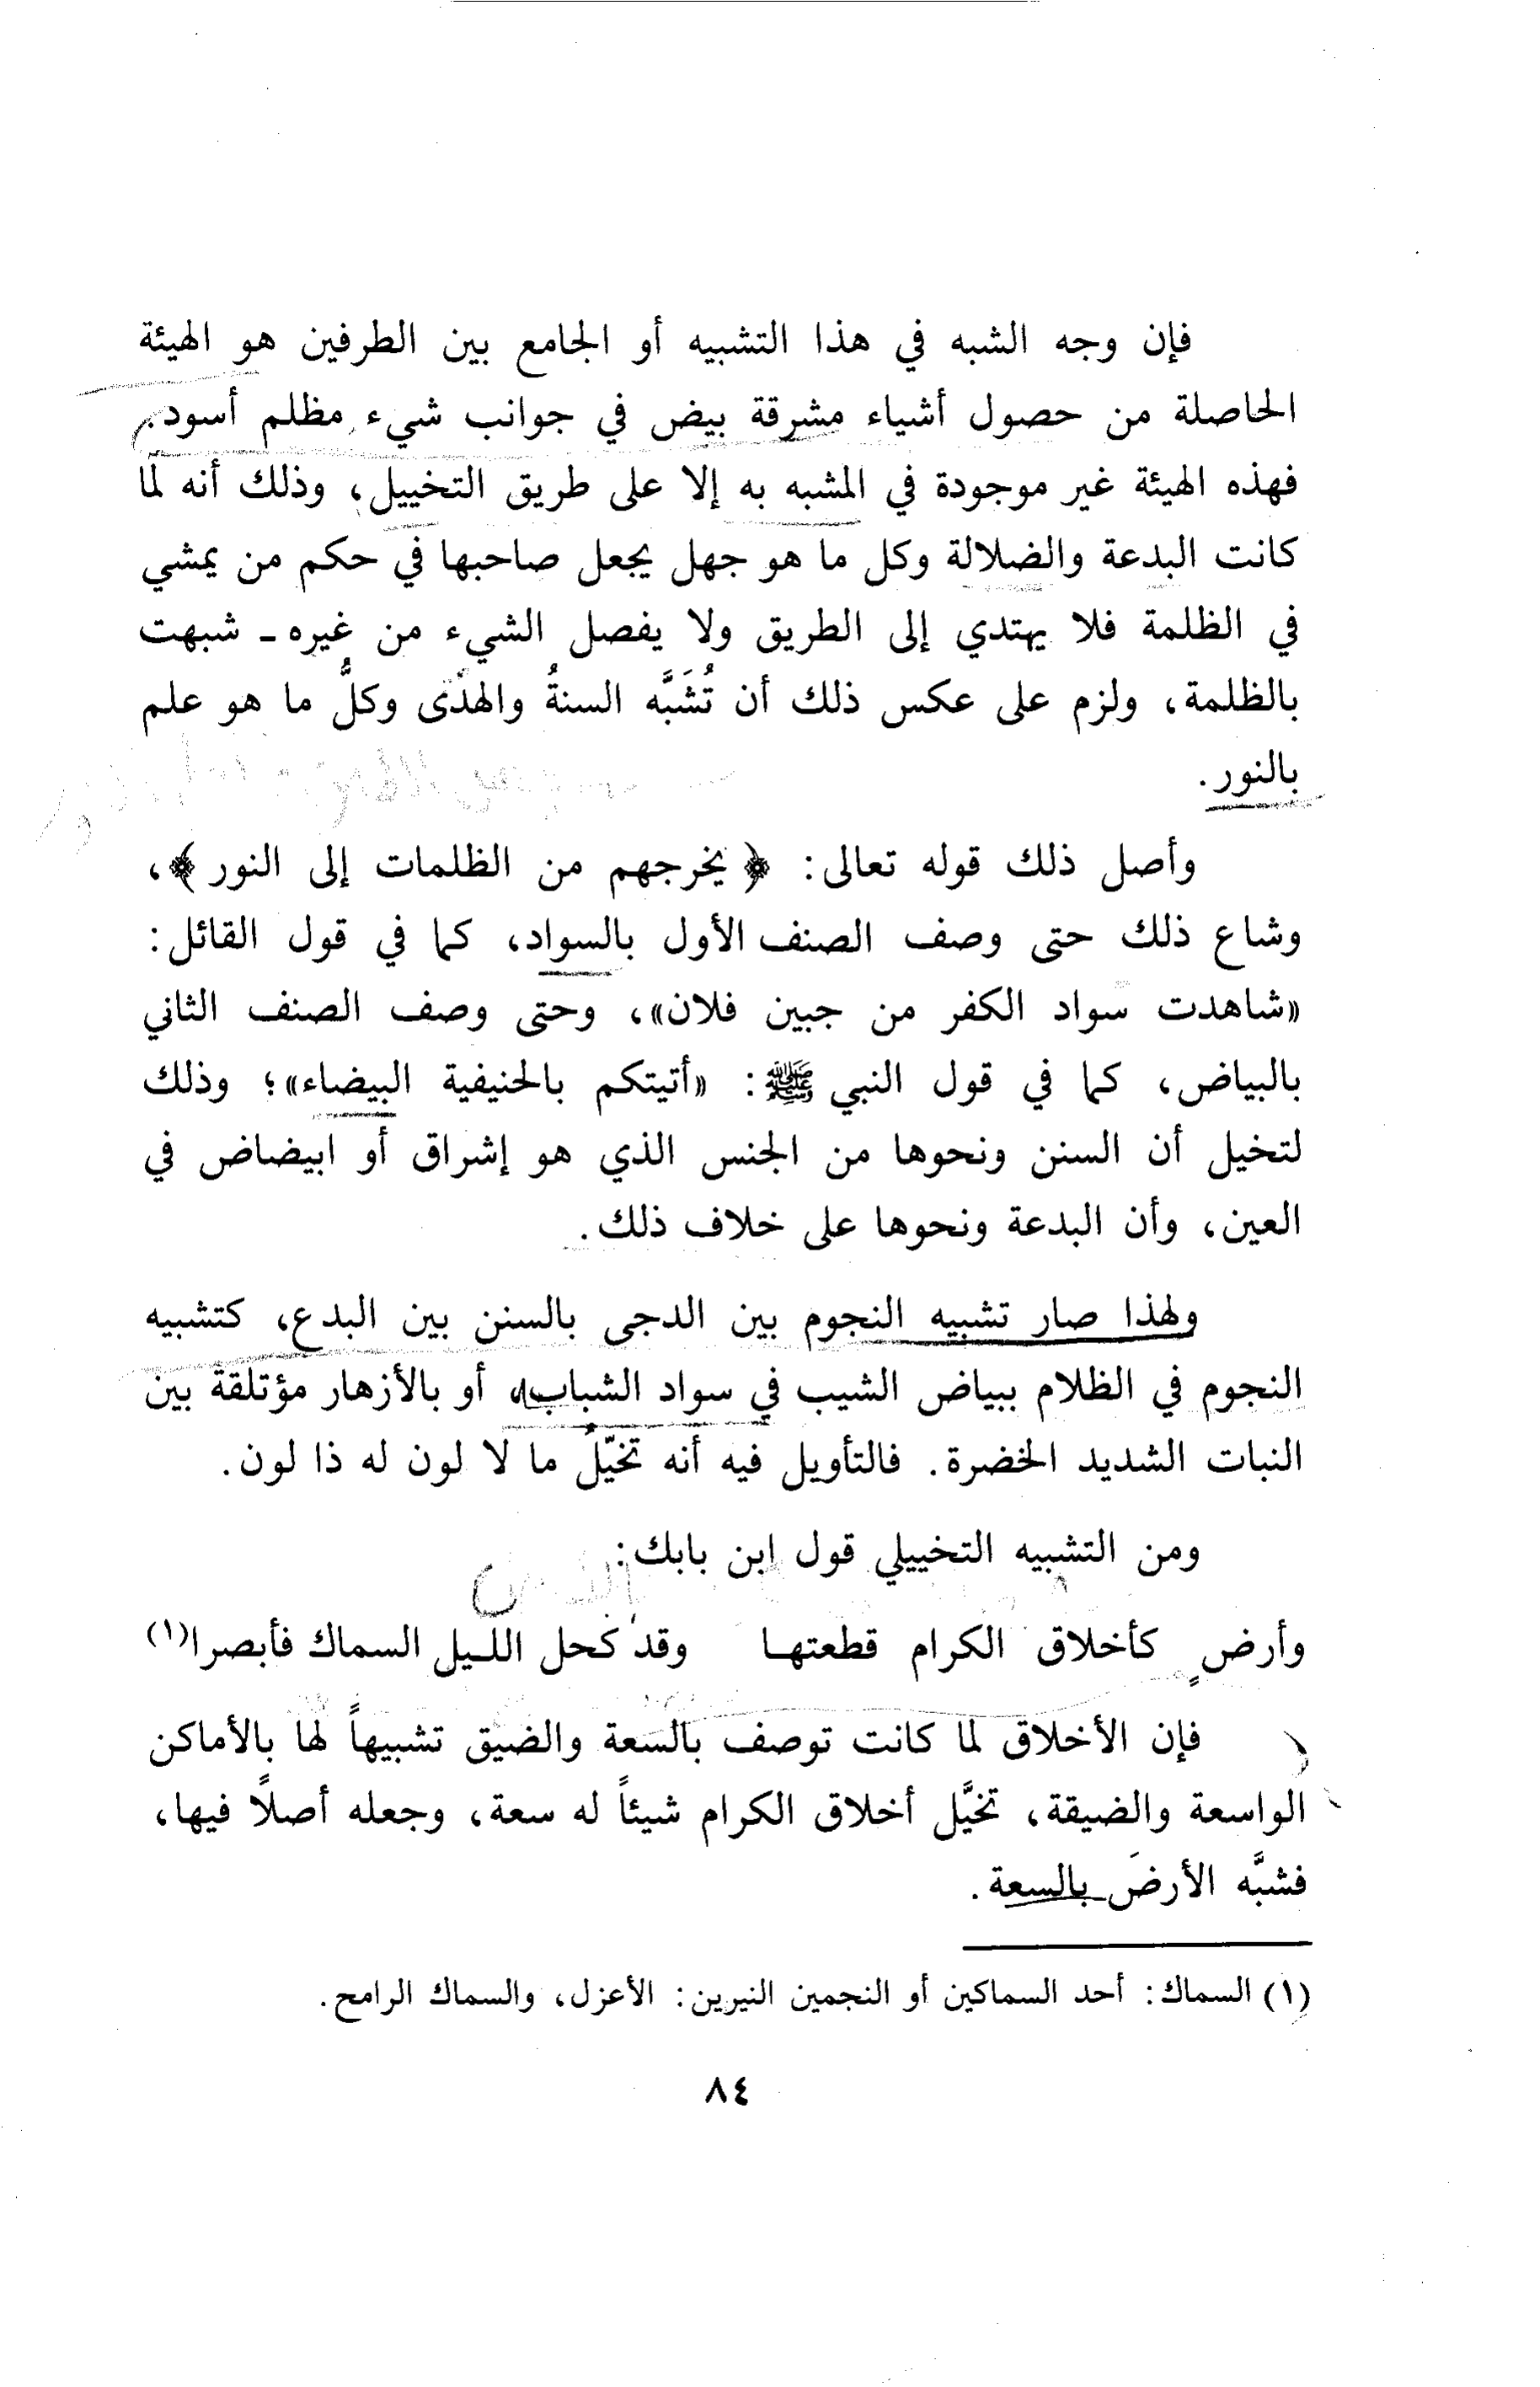 فإن وجه الشبه في هذا التشبيه أو الجامع بين الطرفين هو الهيئة
الحاصلة من حصول أشياء مشرقة بيض في جوانب شيء مظلم أسود.
فهذه الهيئة غير موجودة في المشبه به إلا على طريق التخييل، وذلك أنه لمّا
كانت البدعة والضلالة وكل ما هو جهل يجعل صاحبها في حكم من يمشي
في الظلمة فلا يهتدي إلى الطريق ولا يفصل الشيء من غيره - شبهت
بالظلمة، ولزم على عكس ذلك أن تُشَبَّه السنةُ والهدَى وكلُّ ما هو علم
بالنور.
وأصل ذلك قوله تعالى: ﴿يخرجهم من الظلمات إلى النور﴾،
وشاع ذلك حتى وصف الصنف الأول بالسواد، كما في قول القائل:
«شاهدت سواد الكفر من جبين فلان»، وحتى وصف الصنف الثاني
بالبياض، كما في قول النبي ﷺ: «أتيتكم بالحنيفية البيضاء»؛ وذلك
لتخيل أن السنن ونحوها من الجنس الذي هو إشراق أو ابيضاض في
العين، وأن البدعة ونحوها على خلاف ذلك.
ولهذا صار تشبيه النجوم بين الدجى بالسنن بين البدع، كتشبيه
النجوم في الظلام ببياض الشيب في سواد الشباب، أو بالأزهار مؤتلقة بين
النبات الشديد الخضرة. فالتأويل فيه أنه تخيّلُ ما لا لون له ذا لون.
ومن التشبيه التخييلي قول ابن بابك:
وأرضٍ كأخلاق الكرام قطعتهـا وقد كحل الليـل السماك فأبصرا(١)
فإن الأخلاق لما كانت توصف بالسعة والضيق تشبيهاً لها بالأماكن
الواسعة والضيقة، تخيَّل أخلاق الكرام شيئاً له سعة، وجعله أصلًا فيها،
فشبَّه الأرضَ بالسعة.
(١) السماك: أحد السماكين أو النجمين النيرين: الأعزل، والسماك الرامح.
٨٤